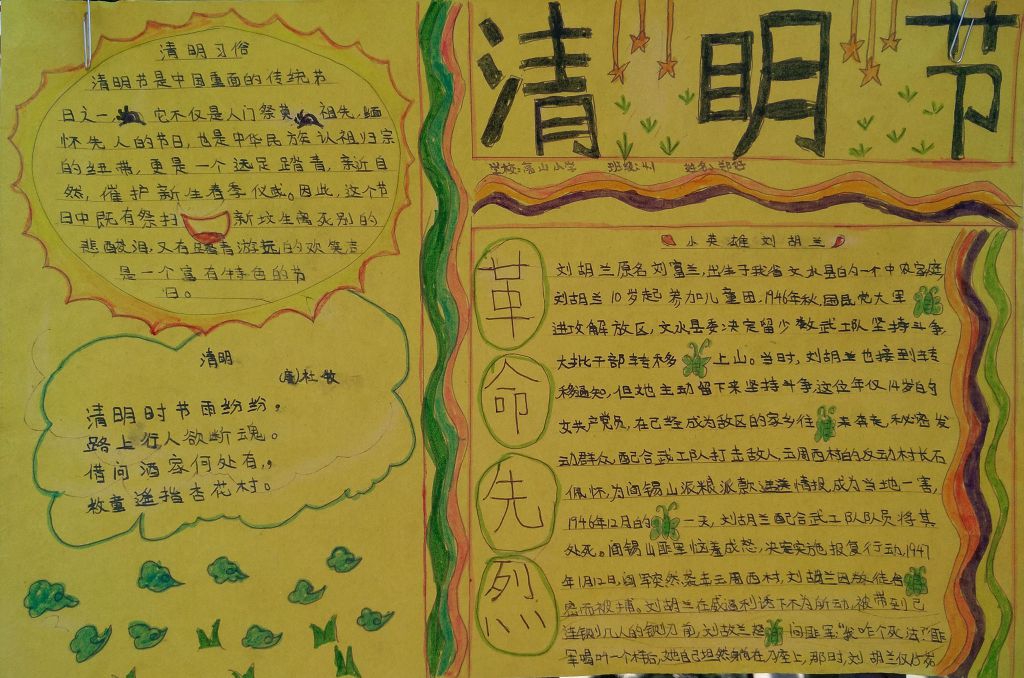 清明节
学校:高山小学 班级:四1 姓名:
清明习俗
清明节是中国重面的传统节
日之一,它不仅是人门祭奠祖先,缅
怀先人的节日,也是中华民族认祖归宗
的纽带,更是一个远足踏青,亲近自
然,催护新生春季仪式。因此,这个节
日中既有祭扫新坟生离死别的
悲酸泪,又有踏青游玩的欢笑声
是一个富有特色的节
日。
清明
(唐)杜牧
清明时节雨纷纷,
路上行人欲断魂。
借问酒家何处有,
牧童遥指杏花村。
革命先烈
小英雄刘胡兰
刘胡兰原名刘富兰,出生于我省文水县的一个中农家庭
刘胡兰10岁起参加儿童团,1946年秋,国民党大军
进攻解放区,文水县委决定留少数武工队坚持斗争,
大批干部转移上山。当时,刘胡兰也接到转
移通知,但她主动留下来坚持斗争,这位年仅14岁的
女共产党员,在已经成为敌区的家乡往来奔走,秘密发
动群众,配合武工队打击敌人,云周西村的反动村长石
佩怀,为阎锡山派粮派款递送情报,成为当地一害,
1946年12月的一天,刘胡兰配合武工队队员将其
处死。阎锡山匪军恼羞成怒,决定实施报复行动,1947
年1月12日,阎军突然袭击云周西村,刘胡兰因叛徒告
密而被捕。刘胡兰在威逼利诱下不为所动,被带到已
连铡几人的铡刀前,刘胡兰怒问匪军"我咋个死法?"匪
军喝叫一个样后,她自己坦然躺在刀座上,那时,刘胡兰仅15岁